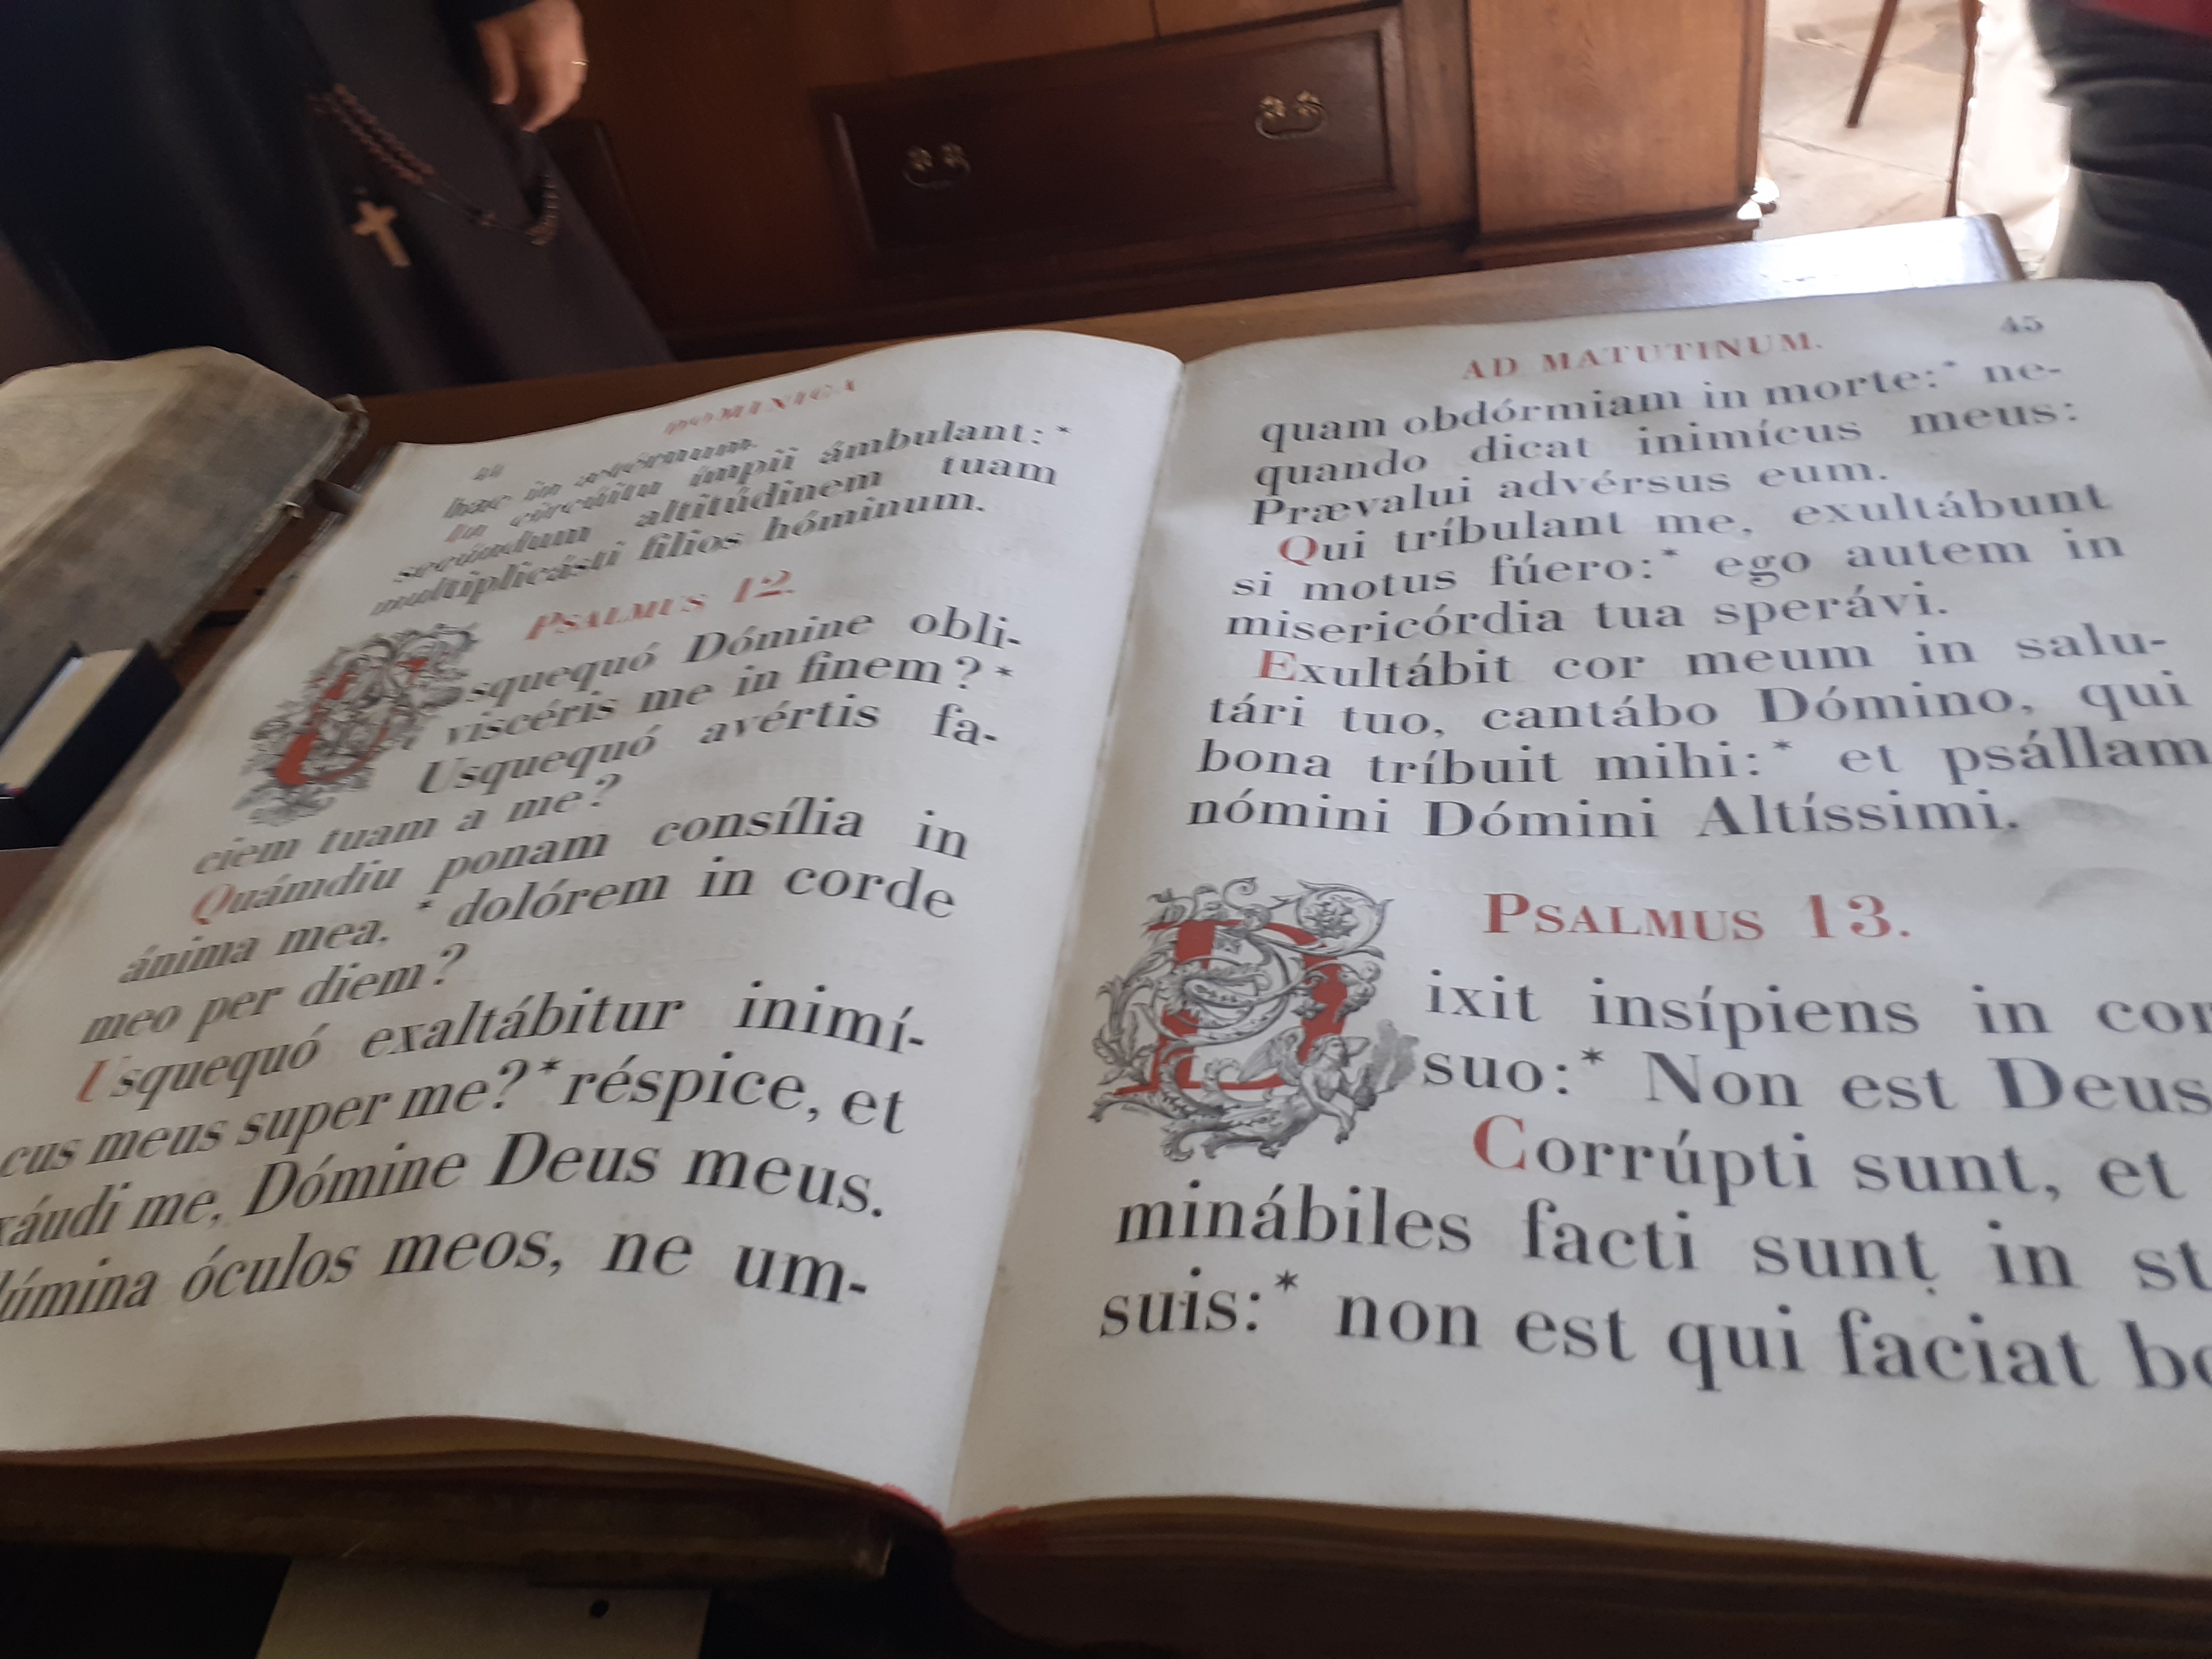 44 DOMINICA
hac in ætérnum.
In circúitu ímpii ámbulant:*
secúndum altitúdinem tuam
multiplicásti fílios hóminum.
PSALMUS 12.
Usquequó Dómine obli-
viscéris me in finem?*
Usquequó avértis fa-
ciem tuam a me?
Quámdiu ponam consília in
ánima mea,* dolórem in corde
meo per diem?
Usquequó exaltábitur inimí-
cus meus super me?* réspice, et
xáudi me, Dómine Deus meus.
lúmina óculos meos, ne um-
AD MATUTINUM. 45
quam obdórmiam in morte:* ne-
quando dicat inimícus meus:
Prævalui advérsus eum.
Qui tríbulant me, exultábunt
si motus fúero:* ego autem in
misericórdia tua sperávi.
Exultábit cor meum in salu-
tári tuo, cantábo Dómino, qui
bona tríbuit mihi:* et psállam
nómini Dómini Altíssimi.
PSALMUS 13.
Dixit insípiens in cor
suo:* Non est Deus
Corrúpti sunt, et
minábiles facti sunt in st
suis:* non est qui faciat bo